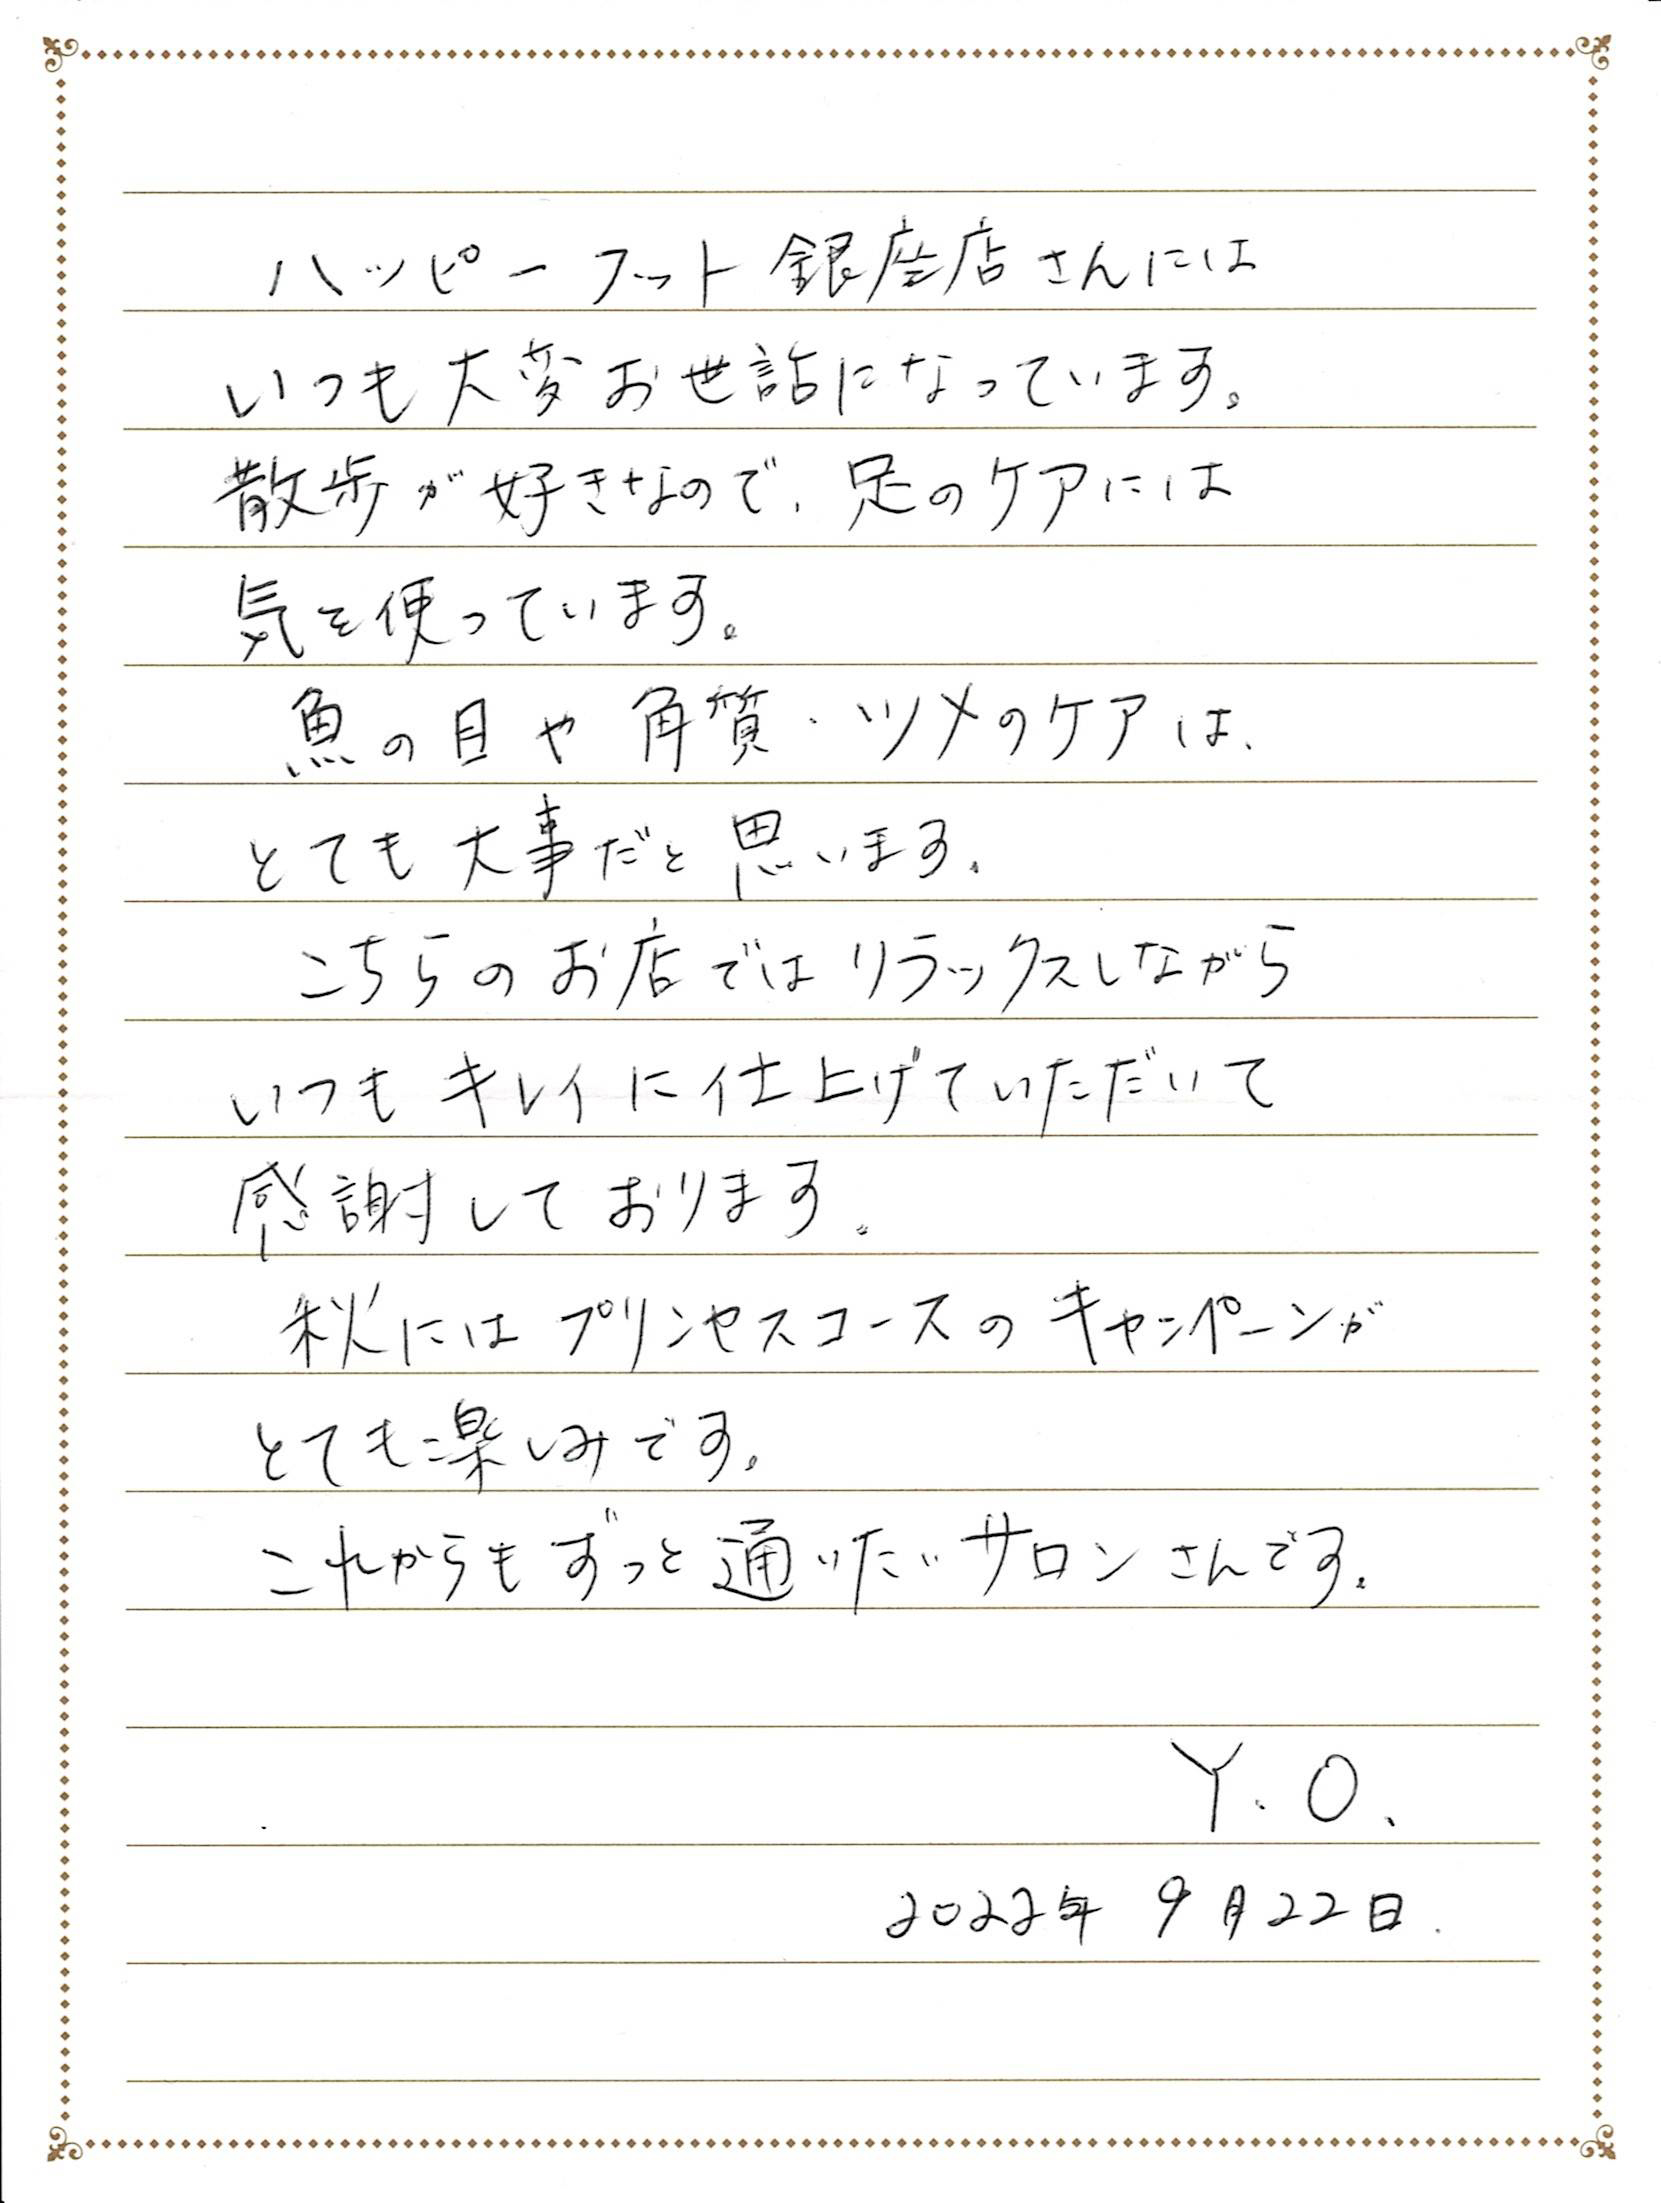 ハッピーフット銀座店さんには
いつも大変お世話になっています。
散歩が好きなので、足のケアには
気を使っています。
魚の目や角質・ツメのケアは、
とても大事だと思います。
こちらのお店ではリラックスしながら
いつもキレイに仕上げていただいて
感謝しております。
秋にはプリンセスコースのキャンペーンが
とても楽しみです。
これからもずっと通いたいサロンさんです。
Y.O.
2022年9月22日.